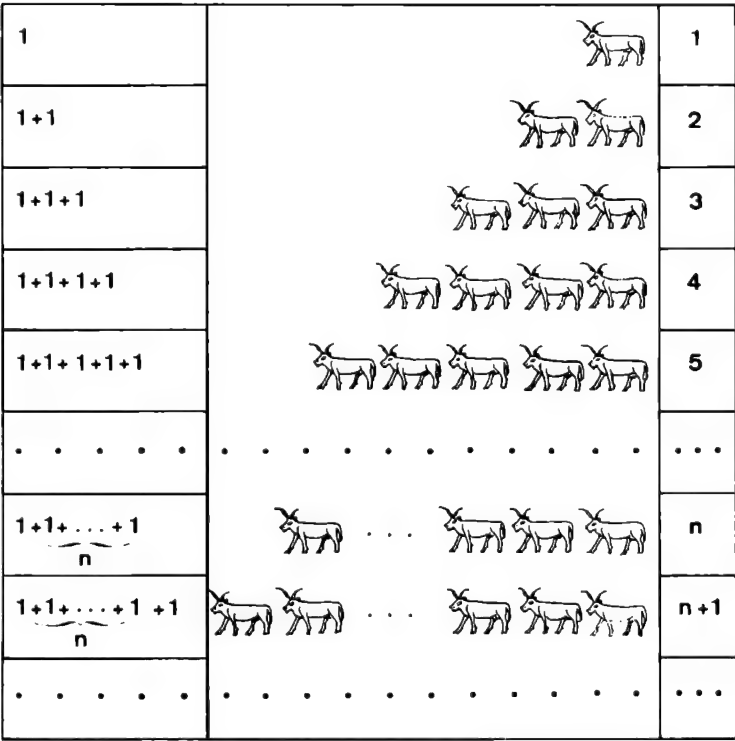 1 1
1+1 2
1+1+1 3
1+1+1+1 4
1+1+1+1+1 5
. . . . . . . . . . . . . . . . . . .
1+1+ . . . + 1 . . . n
n
1+1+ . . . + 1 +1 . . . n+1
n
. . . . . . . . . . . . . . . . . . .